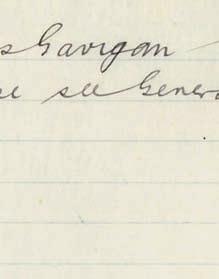 s Gavigan
se see Genera